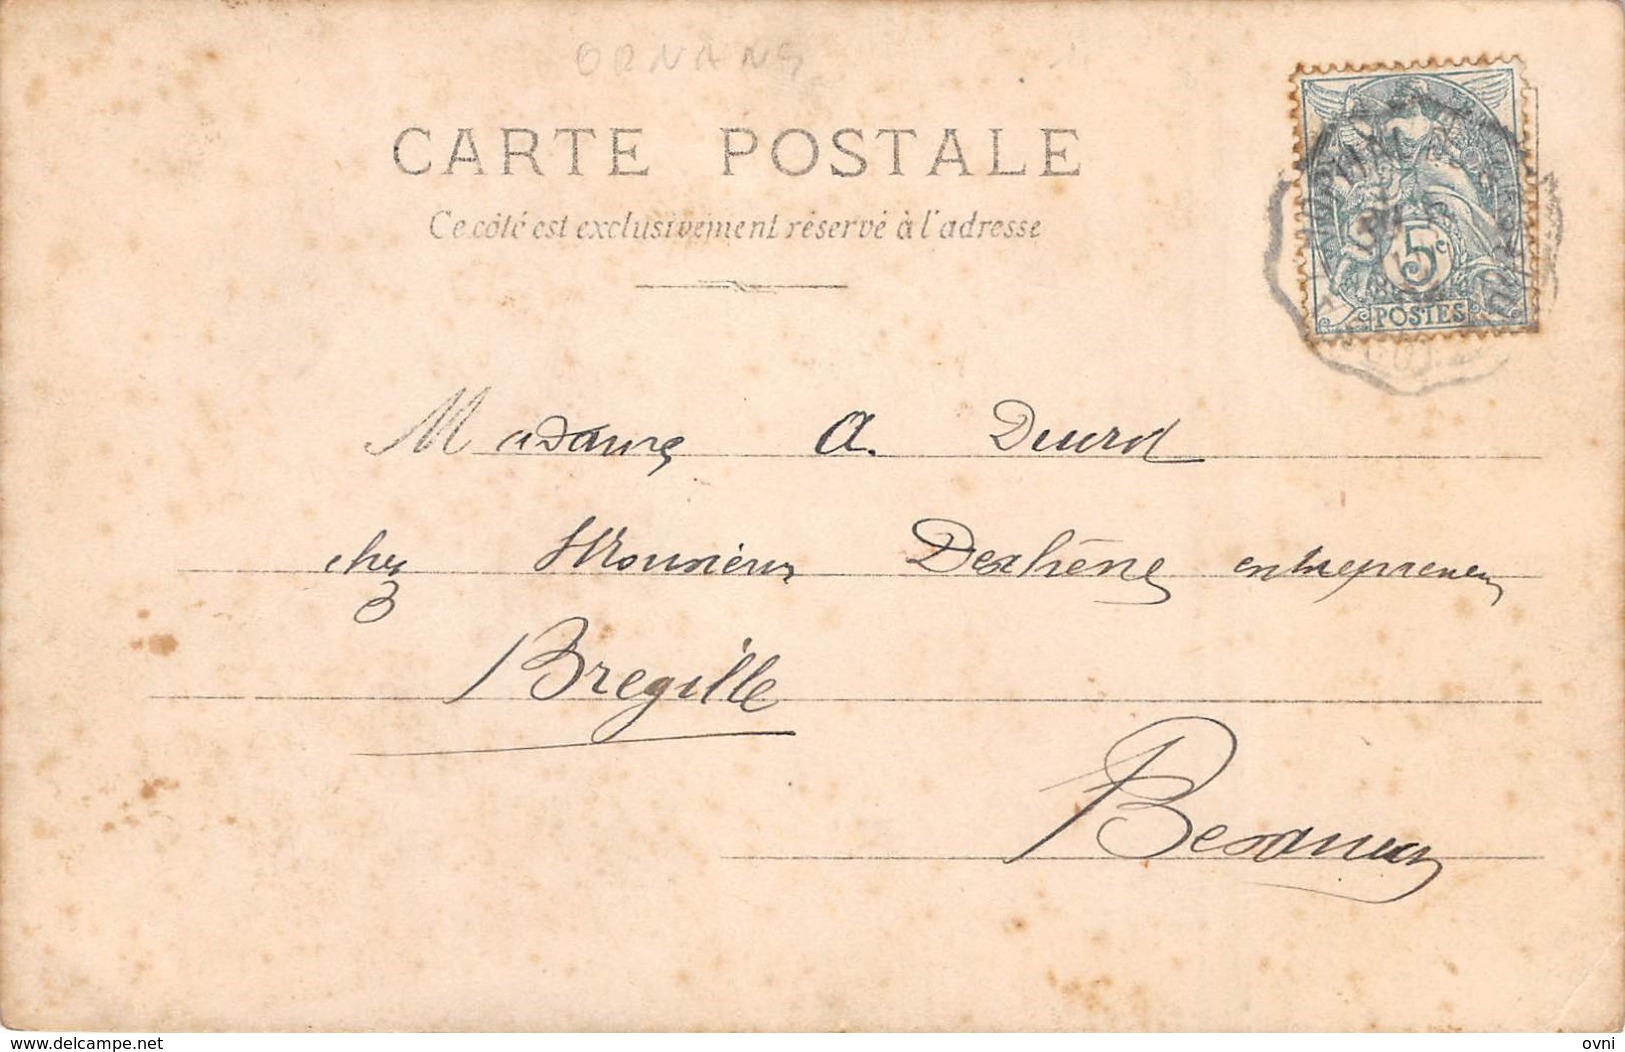 ORNANS
CARTE POSTALE
Ce côté est exclusivement réservé à l'adresse
5c
POSTES
Madame A.
chez Monsieur entrepreneur
Bregille
Besançon
www.delcampe.net
ovni